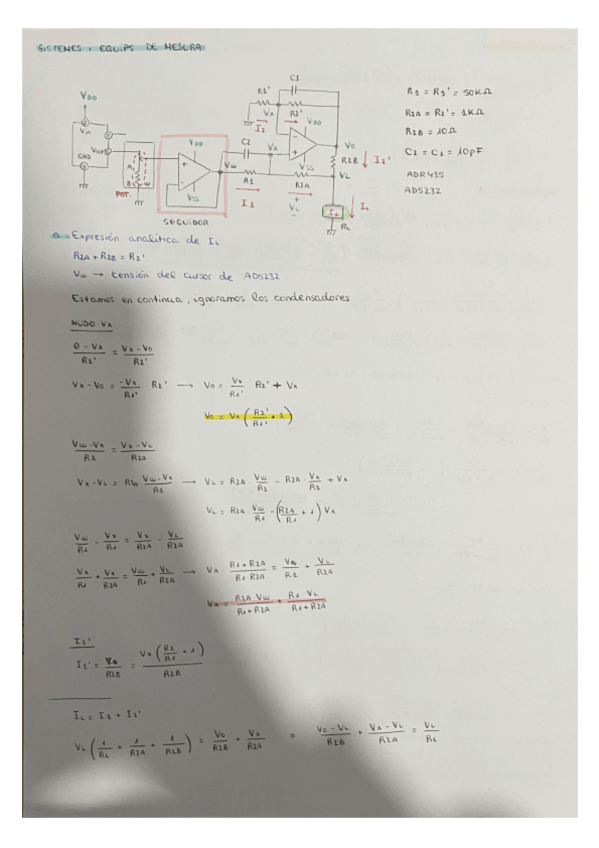 SISTEMES i EQUIPS DE MESURA
C1
R1'
VA
R2'
I2
VDD
VDD
Vin
Vout
GND
A
B
W
POT.
VDD
VSS
VW
SEGUIDOR
C2
R1
I1
VA
VSS
R2A
+
VL
-
VO
R2B
I2'
VL
IL
RL
R1 = R1' = 50KΩ
R2A = R2' = 1KΩ
R2B = 10Ω
C1 = C2 = 10pF
ADR435
AD5232
a. Expresión analítica de IL
R2A + R2B = R2'
VW → tensión del cursor de AD5232
Estamos en continua, ignoramos los condensadores
NUDO VA
0 - VA / R1' = VA - VO / R2'
VA - VO = -VA / R1' R2' → VO = VA / R1' R2' + VA
VO = VA ( R2' / R1' + 1 )
VW - VA / R1 = VA - VL / R2A
VA - VL = R2A VW - VA / R1 → VL = R2A · VW / R1 - R2A · VA / R1 + VA
VL = R2A · VW / R1 - ( R2A / R1 + 1 ) VA
VW / R1 - VA / R1 = VA / R2A - VL / R2A
VA / R1 + VA / R2A = VW / R1 + VL / R2A → VA · R1 + R2A / R1 · R2A = VW / R1 + VL / R2A
VA = R2A · VW / R1 + R2A + R1 · VL / R1 + R2A
I2'
I2' = / R2B = VA ( R2 / R1 + 1 ) / R2B
IL = I1 + I2'
VL ( 1 / RL + 1 / R2A + 1 / R2B ) = VO / R2B + VA / R2A o VO - VL / R2B + VA - VL / R2A = VL / RL